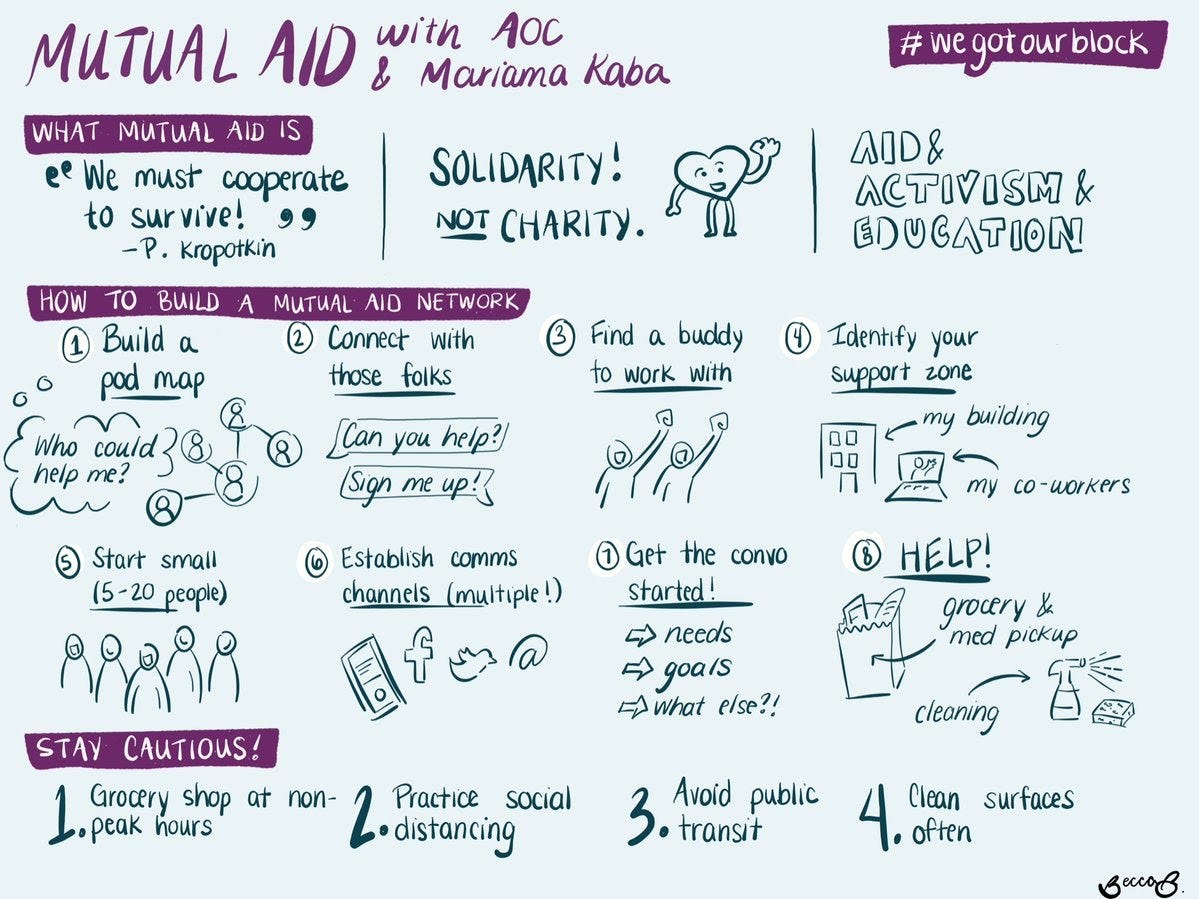 MUTUAL AID with AOC
& Mariama Kaba
#wegotourblock
WHAT MUTUAL AID IS
"We must cooperate
to survive!"
-P. Kropotkin
SOLIDARITY!
NOT CHARITY.
AID &
ACTIVISM &
EDUCATION!
HOW TO BUILD A MUTUAL AID NETWORK
1 Build a
pod map
Who could
help me?
2 Connect with
those folks
Can you help?
Sign me up!
3 Find a buddy
to work with
4 Identify your
support zone
my building
my co-workers
5 Start small
(5-20 people)
6 Establish comms
channels (multiple!)
@
7 Get the convo
started!
⇨ needs
⇨ goals
⇨ what else?!
8 HELP!
grocery &
med pickup
cleaning
STAY CAUTIOUS!
1. Grocery shop at non-
peak hours
2. Practice social
distancing
3. Avoid public
transit
4. Clean surfaces
often
BeccaB.